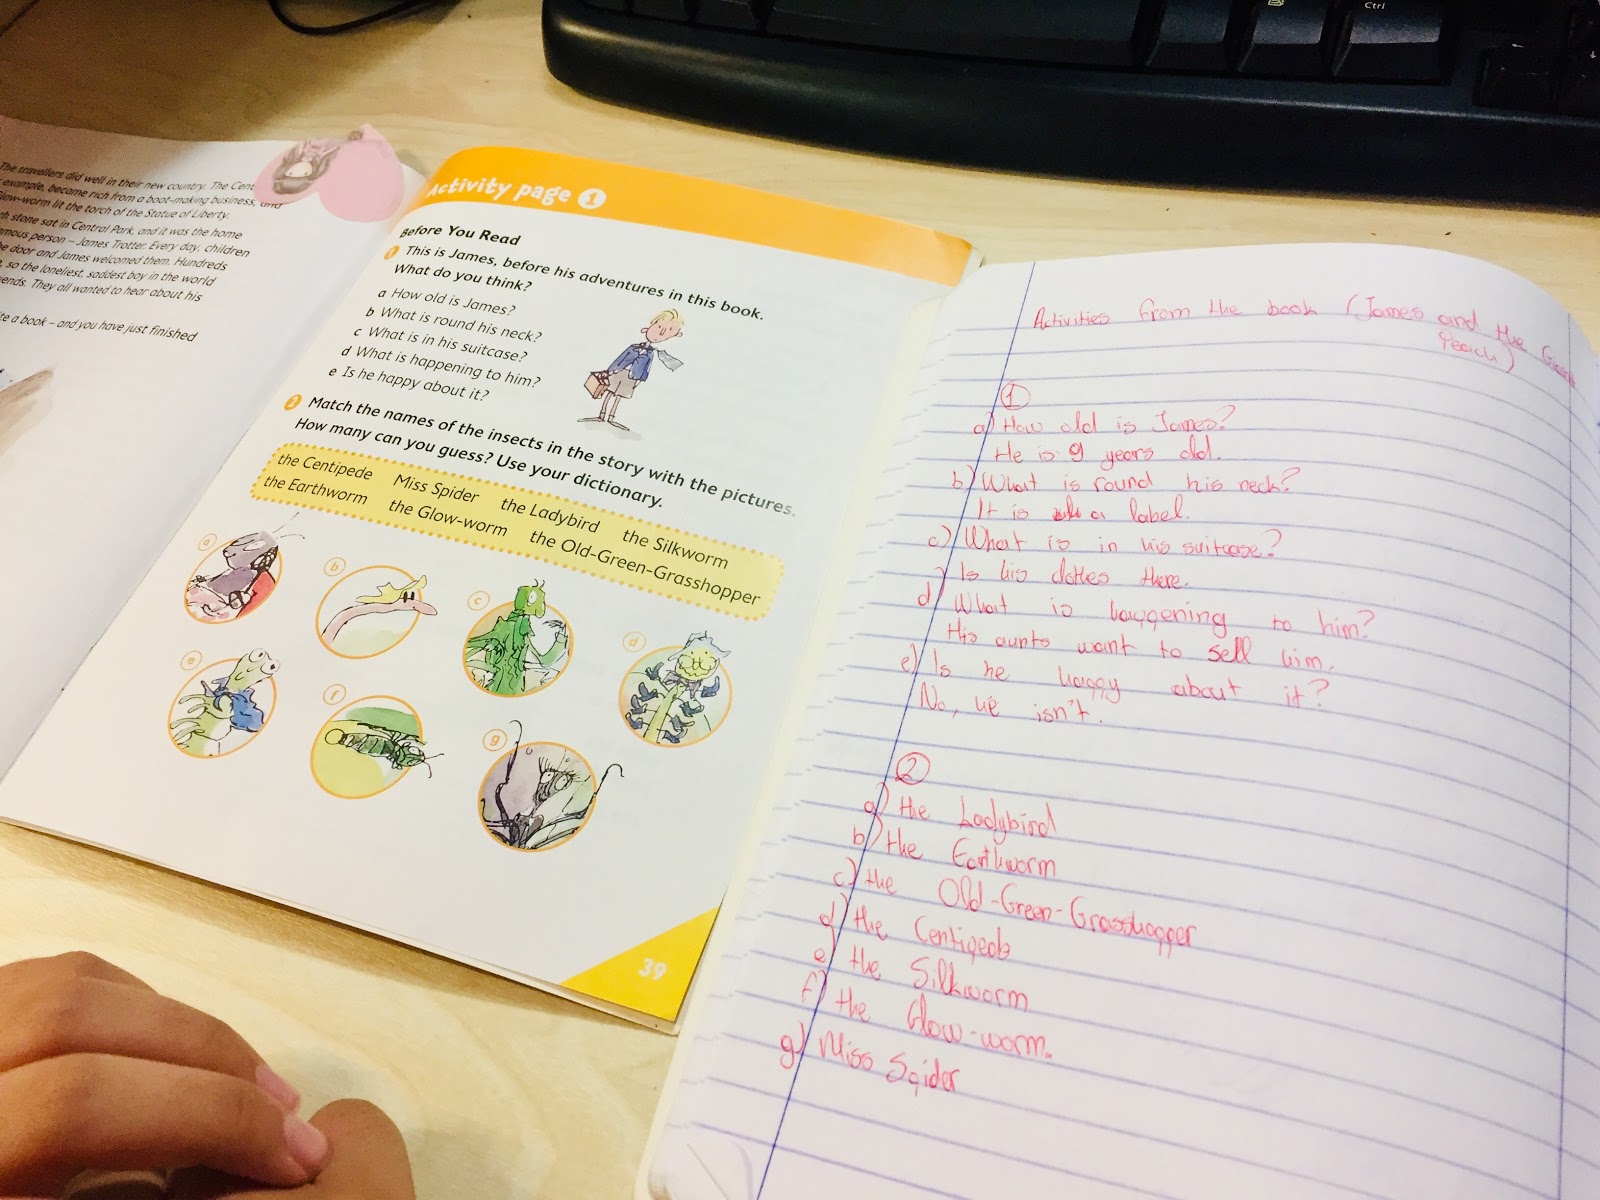 The travellers did well in their new country. The Cent
example, became rich from a boot-making business, and
low-worm lit the torch of the Statue of Liberty.
h stone sat in Central Park, and it was the home
mous person – James Trotter. Every day, children
e door and James welcomed them. Hundreds
, so the loneliest, saddest boy in the world
ends. They all wanted to hear about his
te a book – and you have just finished
Activity page 1
Before You Read
1 This is James, before his adventures in this book.
What do you think?
a How old is James?
b What is round his neck?
c What is in his suitcase?
d What is happening to him?
e Is he happy about it?
2 Match the names of the insects in the story with the pictures.
How many can you guess? Use your dictionary.
the Centipede Miss Spider the Ladybird the Silkworm
the Earthworm the Glow-worm the Old-Green-Grasshopper
a
b
c
d
e
f
g
39
Activities from the book (James and the Giant
Peach)
1
a) How old is James?
He is 9 years old.
b) What is round his neck?
It is a label.
c) What is in his suitcase?
Is his clothes there.
d) What is happening to him?
His aunts want to sell him.
e) Is he happy about it?
No, he isn't.
2
a) the Ladybird
b) the Earthworm
c) the Old-Green-Grasshopper
d) the Centipede
e) the Silkworm
f) the Glow-worm.
g) Miss Spider
Ctrl